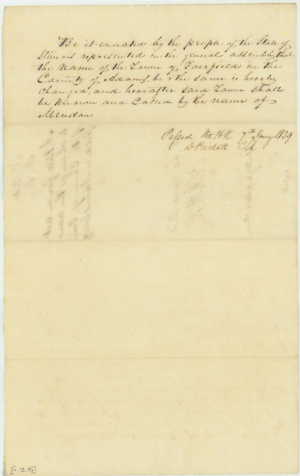 Be it enacted by the people of the State of
Illinois represented in the general assembly, that
the Name of the Town of Fairfield in the
County of Adams, be & the same is hereby
changed, and hereafter said Town Shall
be Known and Called by the name of
Mendon
Passed H. R. 7th Jany 1839
D Prickett Clk